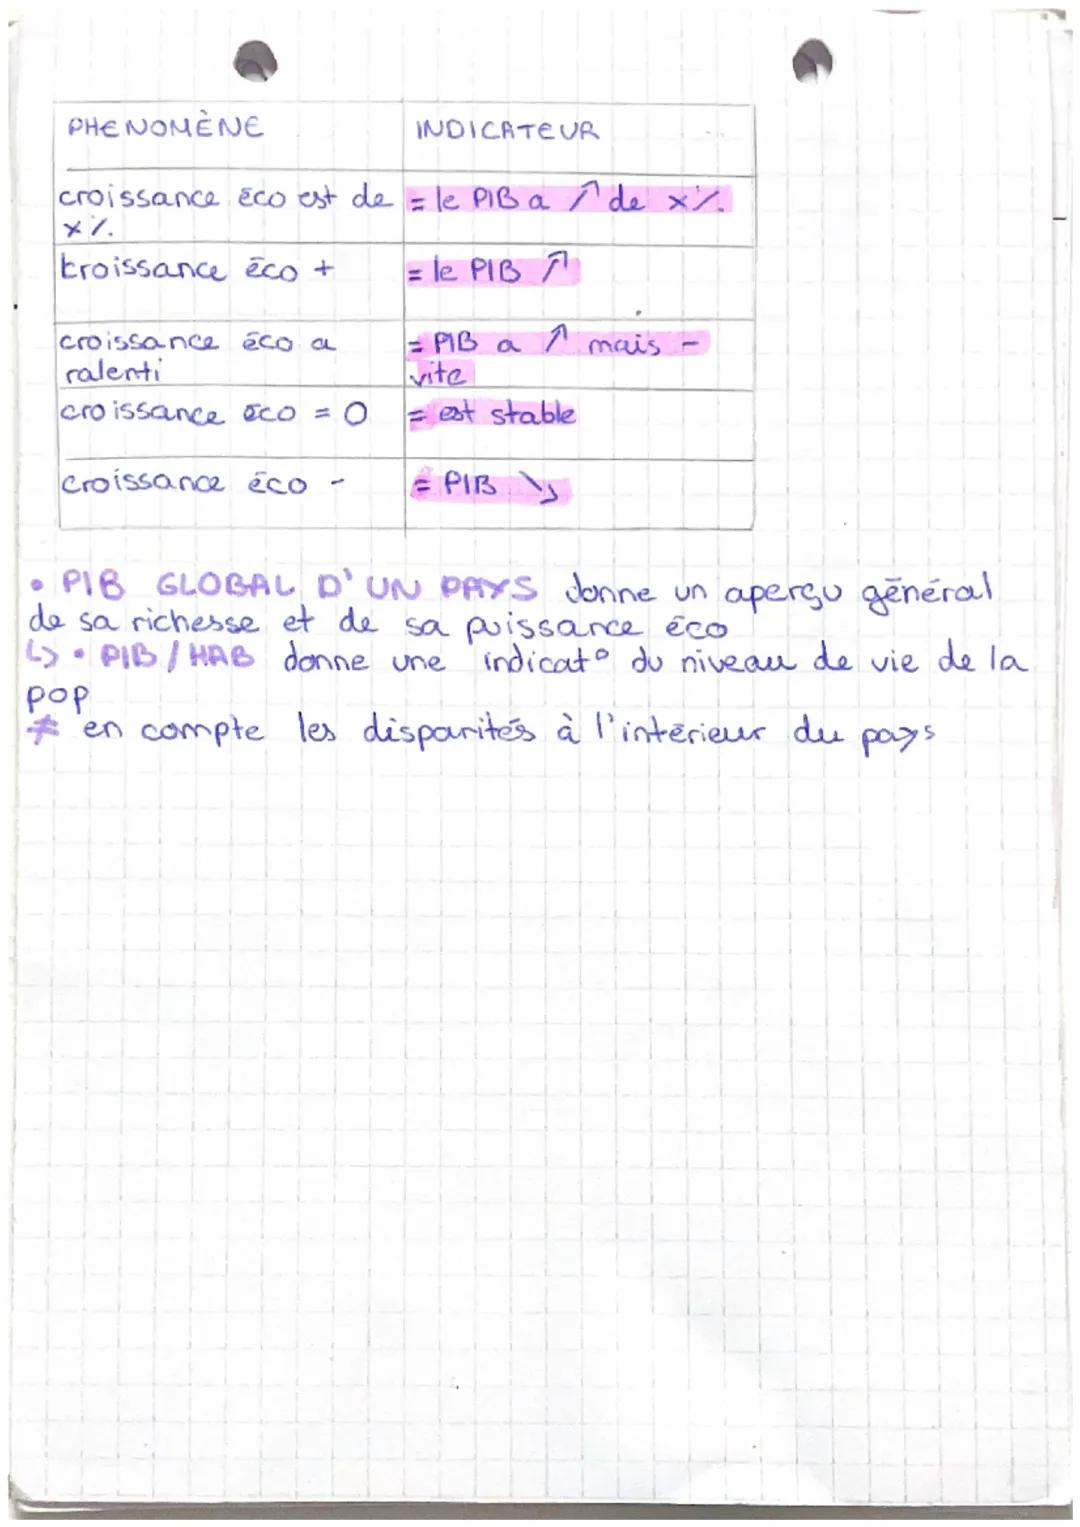 PHENOMÈNE INDICATEUR
croissance éco est de = le PIB a ↗ de x%.
x%.
croissance éco + = le PIB ↗
croissance éco a = PIB a ↗ mais -
ralenti vite
croissance éco = 0 = est stable
croissance éco - = PIB ↘
• PIB GLOBAL D'UN PAYS donne un aperçu général
de sa richesse et de sa puissance éco
↳ • PIB / HAB donne une indicat° du niveau de vie de la
pop
≠ en compte les disparités à l'intérieur du pays